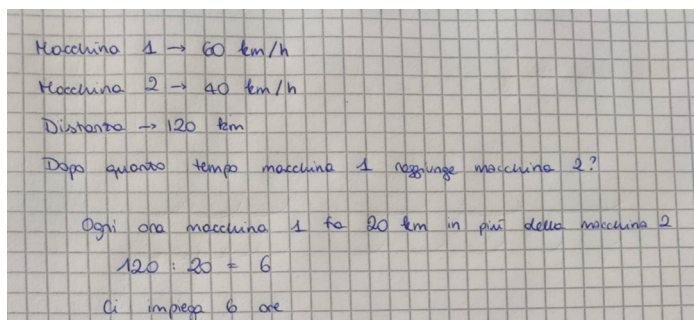 Macchina 1 → 60 km/h
Macchina 2 → 40 km/h
Distanza → 120 km
Dopo quanto tempo macchina 1 raggiunge macchina 2?
Ogni ora macchina 1 fa 20 km in più della macchina 2
120 : 20 = 6
Ci impiega 6 ore